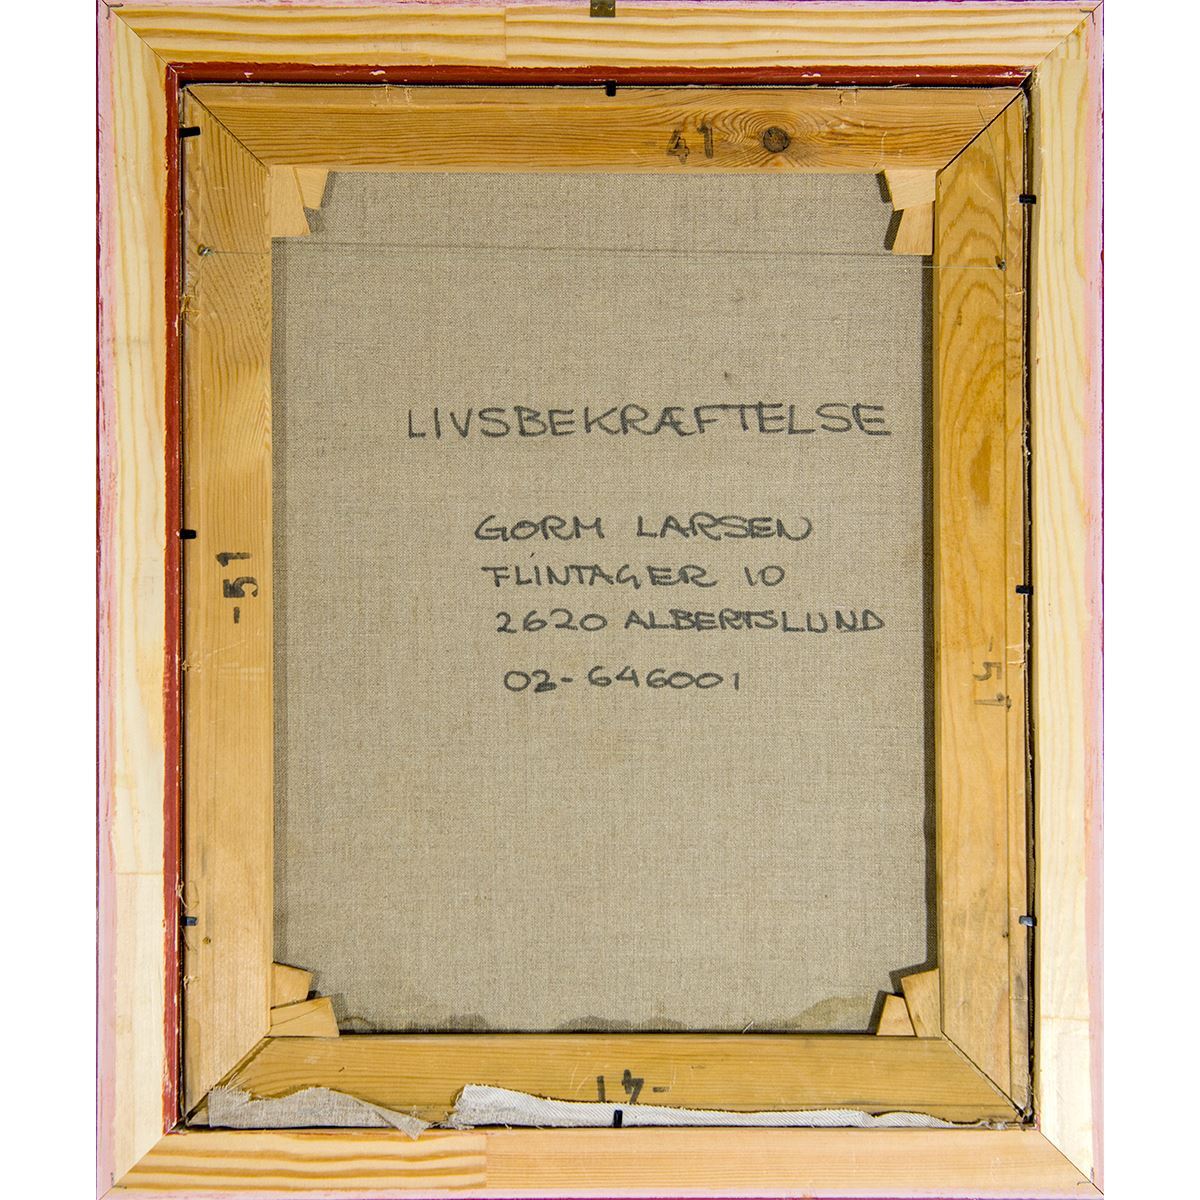 -41
LIVSBEKRÆFTELSE
GORM LARSEN
FLINTAGER 10
2620 ALBERTSLUND
02-646001
-51
-51
-41